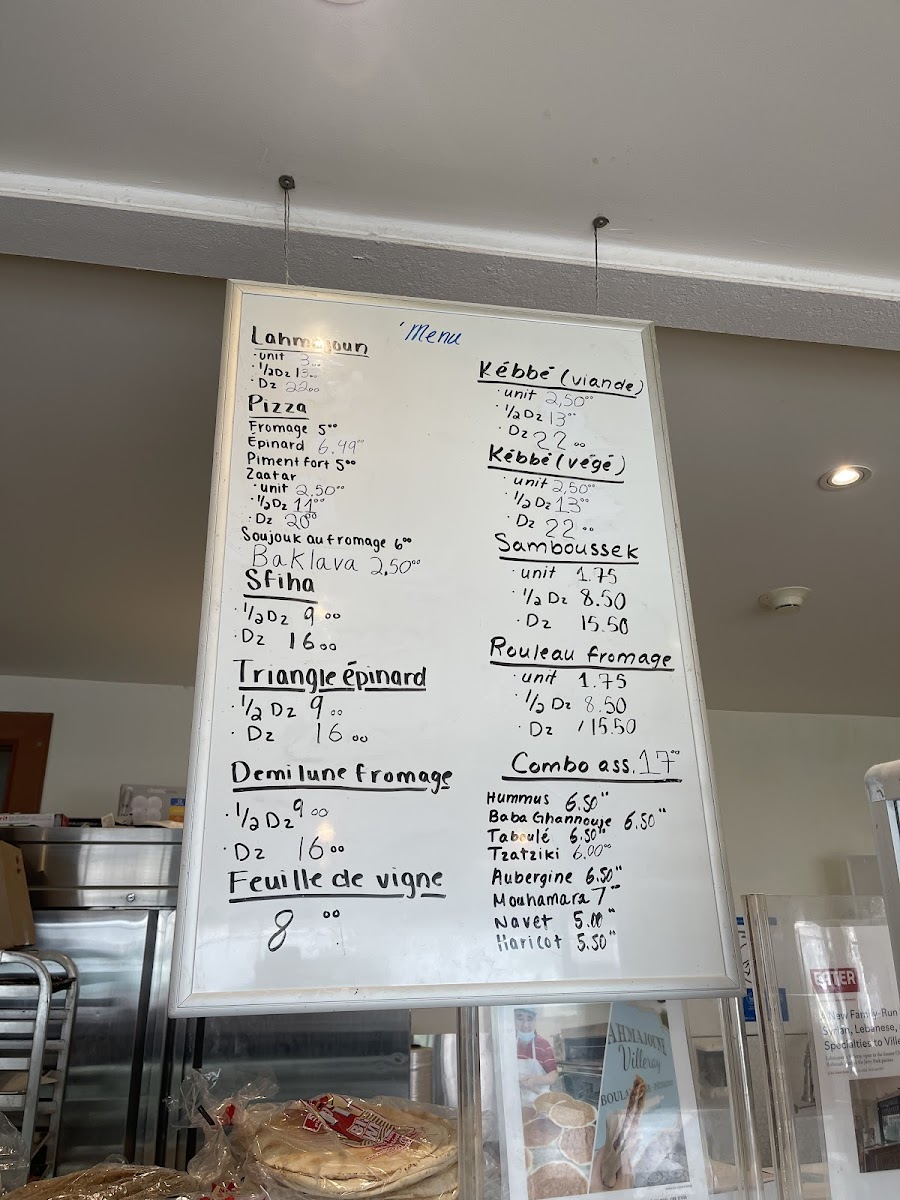 Menu
Lahmajoun
· unit 3.00
· 1/2 Dz 13.00
· Dz 22.00
Pizza
Fromage 5°°
Épinard 6.49°°
Piment fort 5°°
Zaatar
· unit 2.50°°
· 1/2 Dz 11°°
· Dz 20°°
Soujouk au fromage 6°°
Baklava 2,50°°
Sfiha
· 1/2 Dz 9.00
· Dz 16.00
Triangle épinard
· 1/2 Dz 9.00
· Dz 16.00
Demi lune fromage
· 1/2 Dz 9°°
· Dz 16°°
Feuille de vigne
8°°
Kébbé (viande)
· unit 2,50°°
· 1/2 Dz 13°°
· Dz 22.00
Kébbé (végé)
· unit 2,50°°
· 1/2 Dz 13°°
· Dz 22.00
Samboussek
· unit 1.75
· 1/2 Dz 8.50
· Dz 15.50
Rouleau fromage
· unit 1.75
· 1/2 Dz 8.50
· Dz 15.50
Combo ass. 17°°
Hummus 6.50"
Baba Ghannouje 6.50"
Taboulé 6.50"
Tzatziki 6.00°°
Aubergine 6.50"
Mouhamara 7°°
Navet 5.00"
Haricot 5.50"
Villeray
EATER
New Family-Run
Syrian, Lebanese,
Specialties to Ville